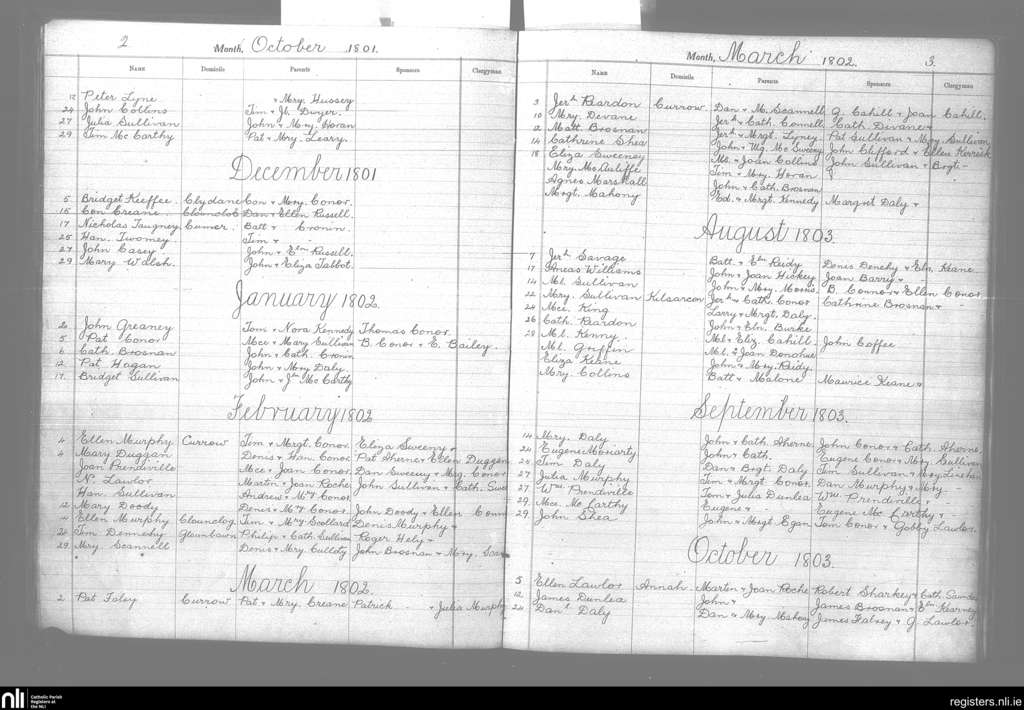 2 Month, October 1801.
NAME Domicile Parents Sponsors Clergyman
12 Peter Lyne " + Mry. Hussey
24 John Collins Tim + Jh. Dwyer.
27 Julia Sullivan John + Mary Horan
29 Tim Mc Carthy Pat + Mry. Leary.
December 1801
5 Bridget Keeffee. Clydane Con + Mary. Conor.
15 Con Creane. Clounclog Dan + Ellen Russell.
17 Nicholas Taugney Cumer. Batt + Cronin.
25 Han. Twomey Tim +
27 John Casey John + Eln Russell.
29 Mary Walsh. John + Eliza Talbot.
January 1802.
2 John Greaney Tom + Nora Kennedy Thomas Conor.
5 Pat Conor Mce + Mary Sullivan B. Conor + E. Bailey.
6 Cath. Brosnan John + Cath. Cronin
12 Pat Hagan John + Mary Daly
17. Bridget Sullivan John + Mc Carthy
February 1802
4 Ellen Murphy Currow Tim + Mrgt. Conor Eliza Sweeny +
4 Mary Duggan Denis + Han. Conor Pat Aherne + Ellen Duggan
Joan Prendiville Mce + Joan Conor Dan Sweeny + Mrg. Conor
N. Lawlor Martin + Joan Roche John Sullivan + Cath.
Han. Sullivan Andrew + Mgt Conor
12 Mary Doody Denis + Mgt Conor John Doody + Ellen
Ellen Murphy Clounclog Tim + Mgt Scollard Denis Murphy +
20 Tim Dennehy Glounbawn Philip + Cath. Sullivan Roger Hely +
29 Mry. Scannell Denis + Mry. Culloty John Brosnan + Mary.
March 1802.
2 Pat Foley Currow Pat + Mry. Creane Patrick + Julia Murphy
Month, March 1802. 3.
NAME Domicile Parents Sponsors Clergyman
3 Jerh Reardon Currow. Dan + M. Scannell G. Cahill + Joan Cahill.
10 Mry. Devane Jerh + Cath. Connell. Cath. Devane +
12 Matt. Brosnan Jerh + Mrgt. Lyney Pat Sullivan + Mry Sullivan
14 Cathrine Shea John + Mg. Mc Sweeny John Clifford + Ellen
18 Eliza Sweeney + Joan Collins John Sullivan + Brgt -
Mary. McAuliffe Tom + Mary. Horan
Agnes Marshall John + Cath. Brosnan
Mrgt. Mahony + Mrgt. Kennedy Margret Daly +
August 1803.
7 Jerh Savage Batt. + Eln Reidy Denis Denehy + Eln. Keane
17 Aneas Williams John + Joan Hickey Joan Barry +
14 Ml. Sullivan John + Mary. Morris. B. Connor + Ellen Conor
22 Mry. Sullivan Kilsarcon Jerh + Cath. Conor Cathrine Brosnan +
24 Mce. King Larry + Mrgt. Daly.
26 Cath. Reardon John + Eln. Burke
28 Ml. Kenny. Ml + Eliz. Cahill. John Coffee
Ml. Griffin Ml. + Joan Donohue
Eliza Keane John + Mry. Reidy.
Mry. Collins Batt + Malone Maurice Keane +
September 1803.
14 Mary. Daly John + Cath. Aherne. John Conor + Cath. Aherne.
24 Eugene Moriarty John + Cath. Eugene Conor + Mry. Sullivan
25 Tim Daly Dan + Brgt. Daly Tim Sullivan + Mry. Linehan
27 Julia Murphy Tim + Mrgt Conor Dan Murphy + Mry.
27 Wm. Prendiville Tom + Julia Dunlea Wm Prendiville +
29. Mce. Mc Carthy Eugene + Eugene Mc Carthy +
29. John Shea John + Mrgt Egan Tom Conor + Gobby Lawlor.
October 1803.
5 Ellen Lawlor Annah. Martin + Joan Roche Robert Sharkey + Cath.
12 James Dunlea John + James Brosnan + Eln Kearney
24 Danl Daly Dan + Mry Mahony James Falvey + G. Lawlor.
nli Catholic Parish
Registers at
the NLI
registers.nli.ie